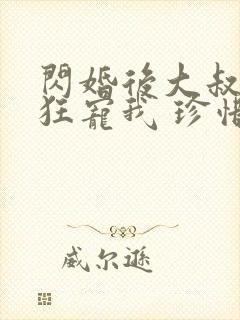 閃婚後大叔
狂寵我 珍惜
威尔逊